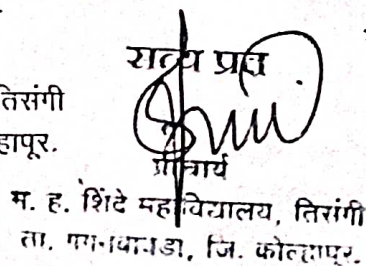 सत्य प्रत
तिसंगी
हापूर.
प्राचार्य
म. ह. शिंदे महाविद्यालय, तिसंगी
ता. गगनबावडा, जि. कोल्हापूर.